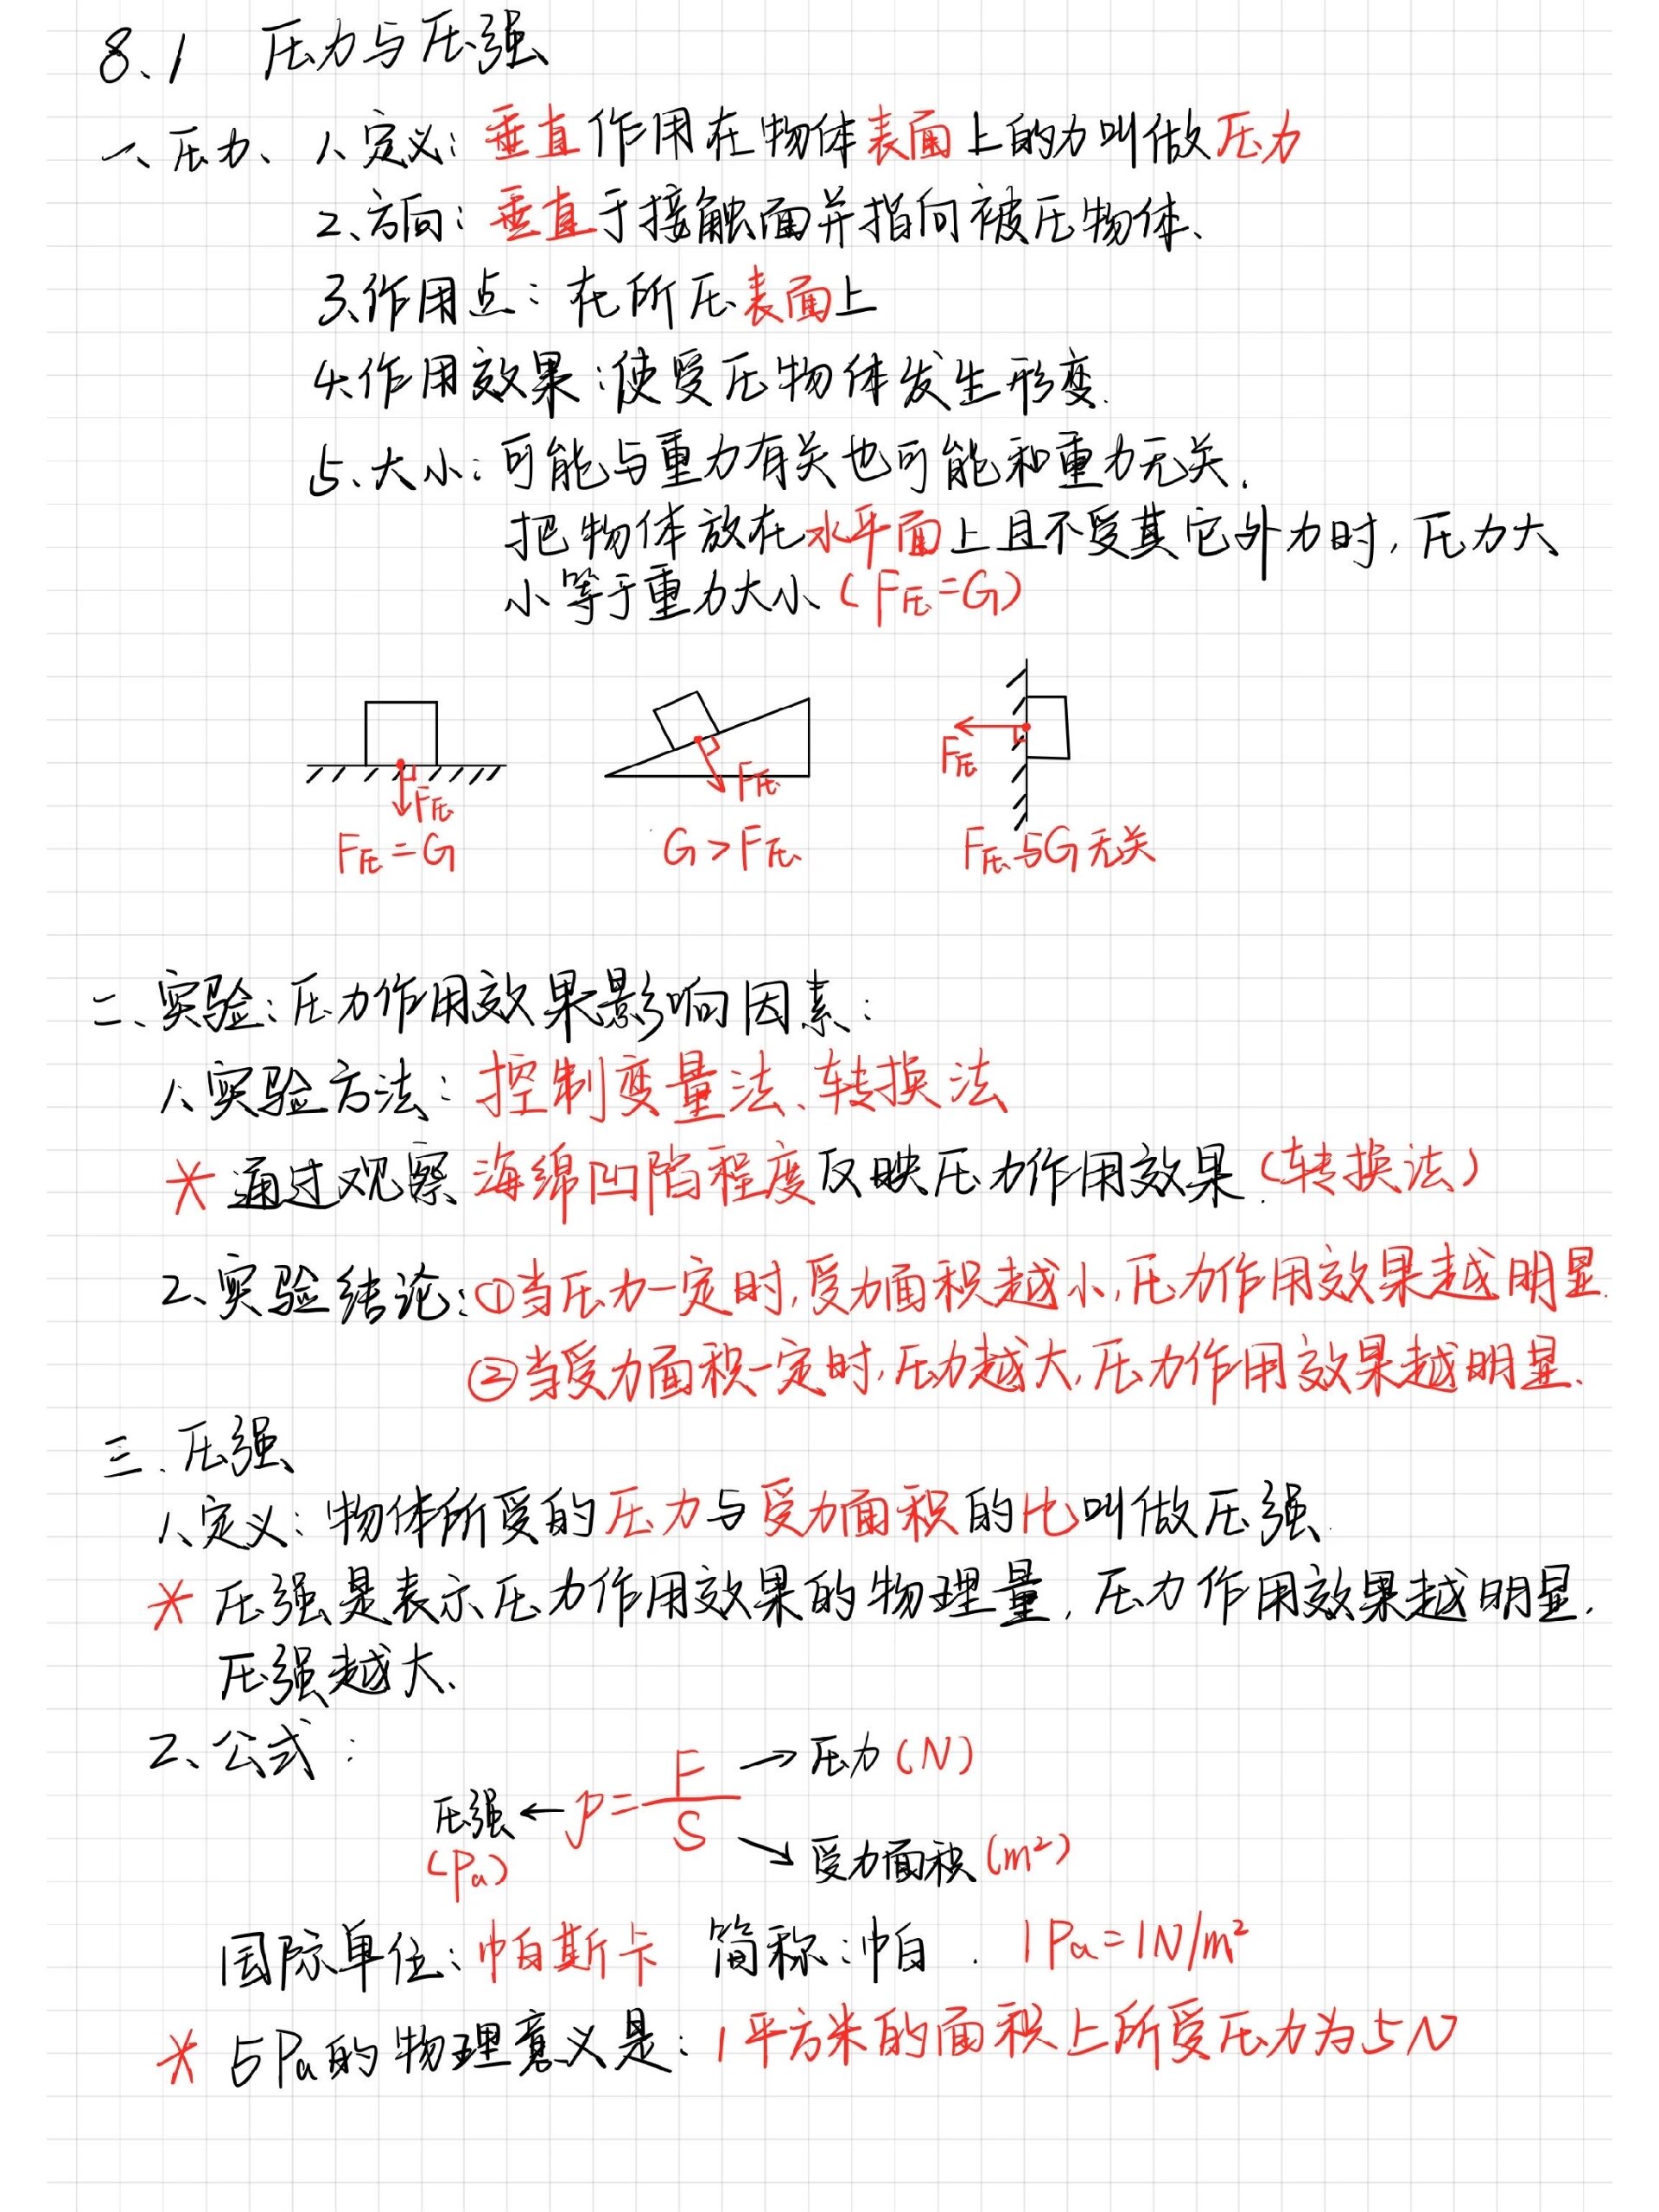 8、1 压力与压强
一、压力、1、定义:垂直作用在物体表面上的力叫做压力
2、方向:垂直于接触面并指向被压物体、
3、作用点:在所压表面上
4、作用效果:使受压物体发生形变.
5、大小:可能与重力有关也可能和重力无关.
把物体放在水平面上且不受其它外力时,压力大
小等于重力大小(F压=G)
F压
F压=G
F压
G>F压
F压
F压与G无关
二、实验:压力作用效果影响因素:
1、实验方法:控制变量法、转换法
* 通过观察海绵凹陷程度反映压力作用效果.(转换法)
2、实验结论:①当压力一定时,受力面积越小,压力作用效果越明显.
②当受力面积一定时,压力越大,压力作用效果越明显.
三.压强
1、定义:物体所受的压力与受力面积的比叫做压强.
* 压强是表示压力作用效果的物理量,压力作用效果越明显,
压强越大、
2、公式:
压强(Pa)←p=F/S
→压力(N)
↘受力面积(m²)
国际单位:帕斯卡 简称:帕. 1Pa=1N/m²
* 5Pa的物理意义是:1平方米的面积上所受压力为5N